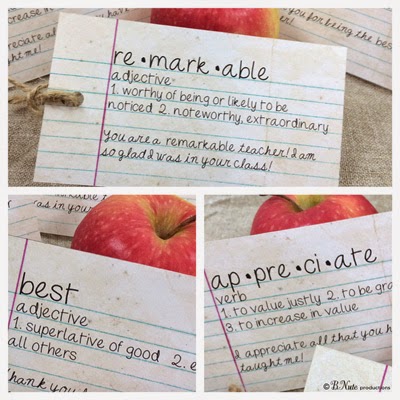 crease in
preciate al
ught me!
you for being the best
re•mark•able
adjective
1. worthy of being or likely to be
noticed 2. noteworthy, extraordinary
You are a remarkable teacher! I am
so glad I was in your class!
as in your
best
adjective
1. superlative of good 2. e
all others
Thank you
ap•pre•ci•ate
verb
1. to value justly 2. to be gra
3. to increase in value
I appreciate all that you h
taught me!
© BNute productions